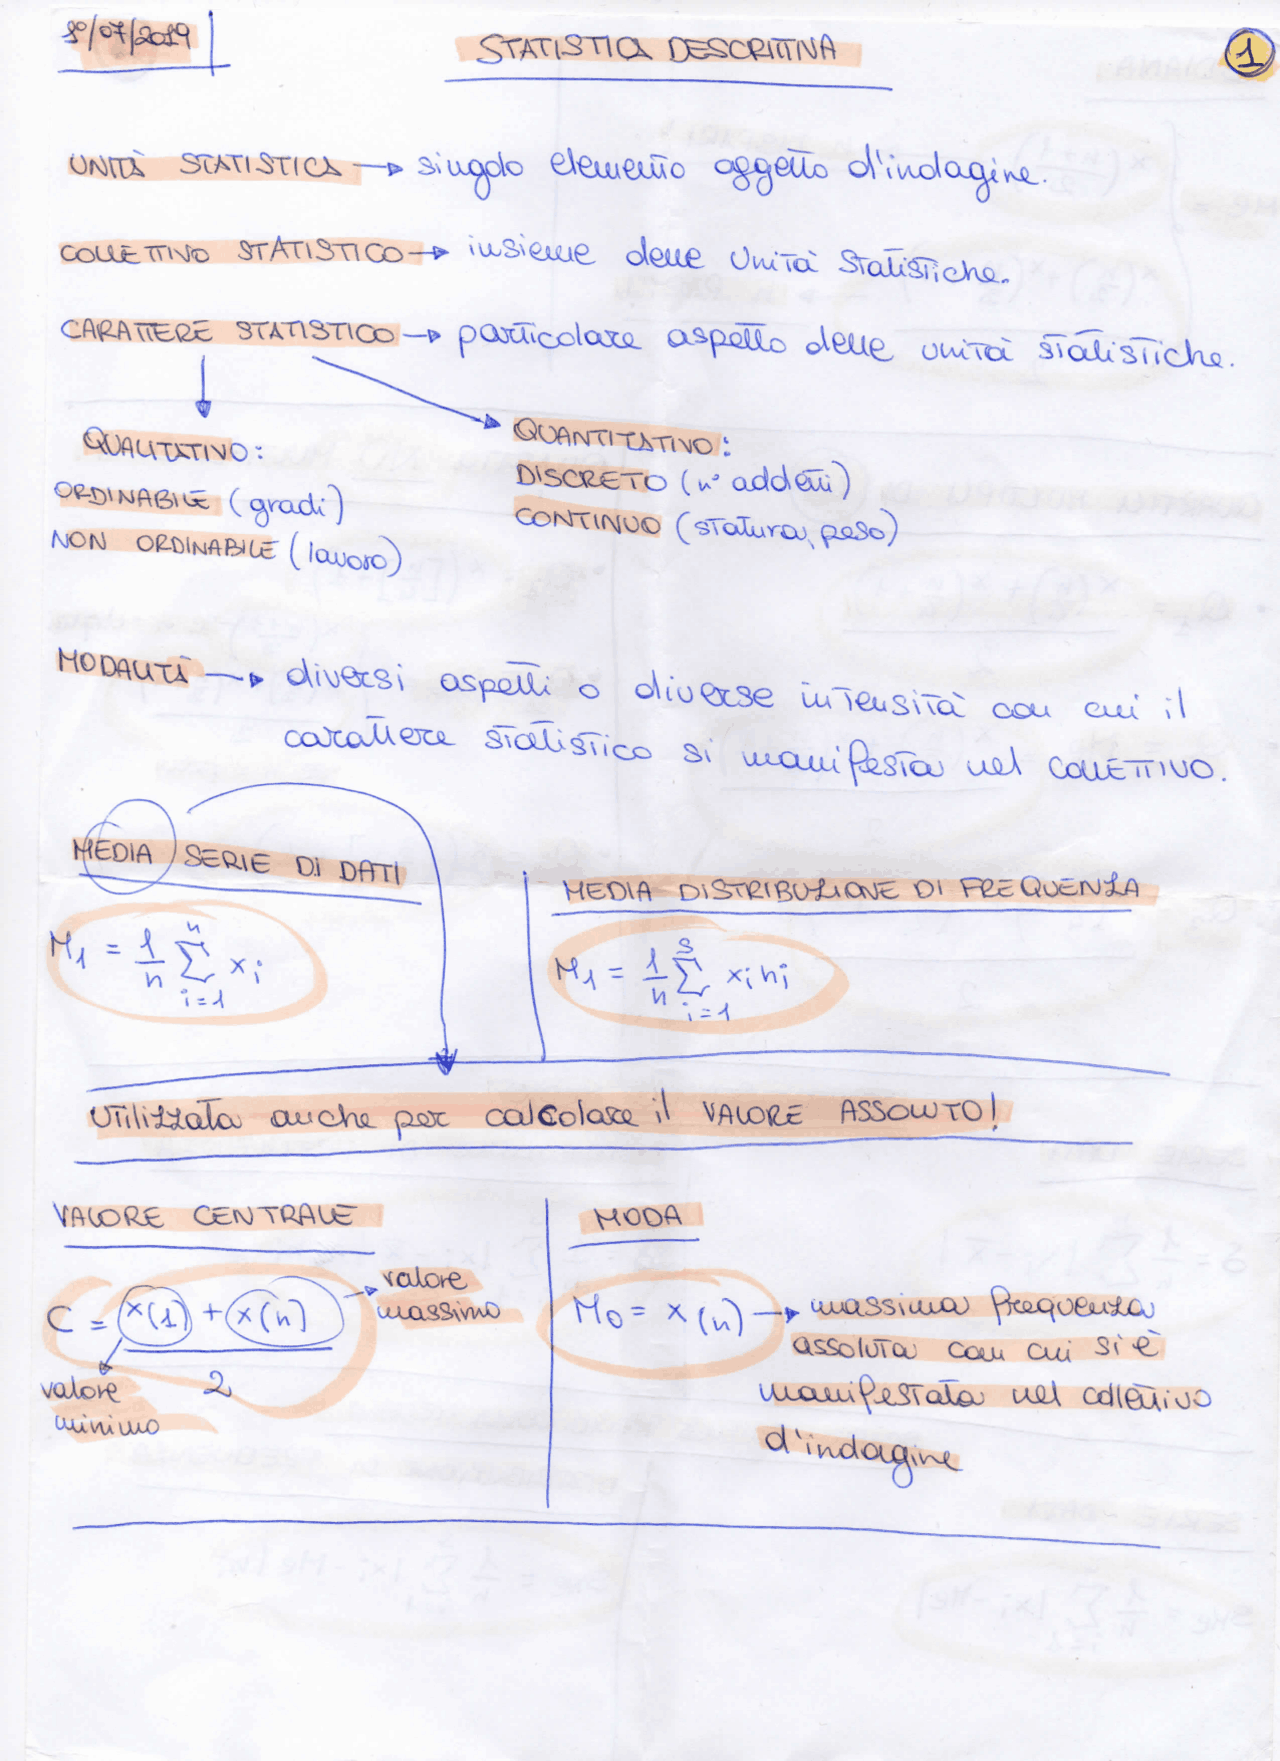 1°/07/2019
STATISTICA DESCRITTIVA
1
UNITÀ STATISTICA → singolo elemento oggetto d'indagine.
COLLETTIVO STATISTICO → insieme delle unità statistiche.
CARATTERE STATISTICO → particolare aspetto delle unità statistiche.
QUALITATIVO:
ORDINABILE (gradi)
NON ORDINABILE (lavoro)
QUANTITATIVO:
DISCRETO (n° addetti)
CONTINUO (statura, peso)
MODALITÀ → diversi aspetti o diverse intensità con cui il
carattere statistico si manifesta nel COLLETTIVO.
MEDIA SERIE DI DATI
M₁ = 1/n Σ_{i=1}^{n} xᵢ
MEDIA DISTRIBUZIONE DI FREQUENZA
M₁ = 1/n Σ_{i=1}^{s} xᵢ nᵢ
Utilizzata anche per calcolare il VALORE ASSOLUTO!
VALORE CENTRALE
C = (x(1) + x(n)) / 2
valore
massimo
valore
minimo
MODA
Mo = x(n) → massima frequenza
assoluta con cui si è
manifestata nel collettivo
d'indagine